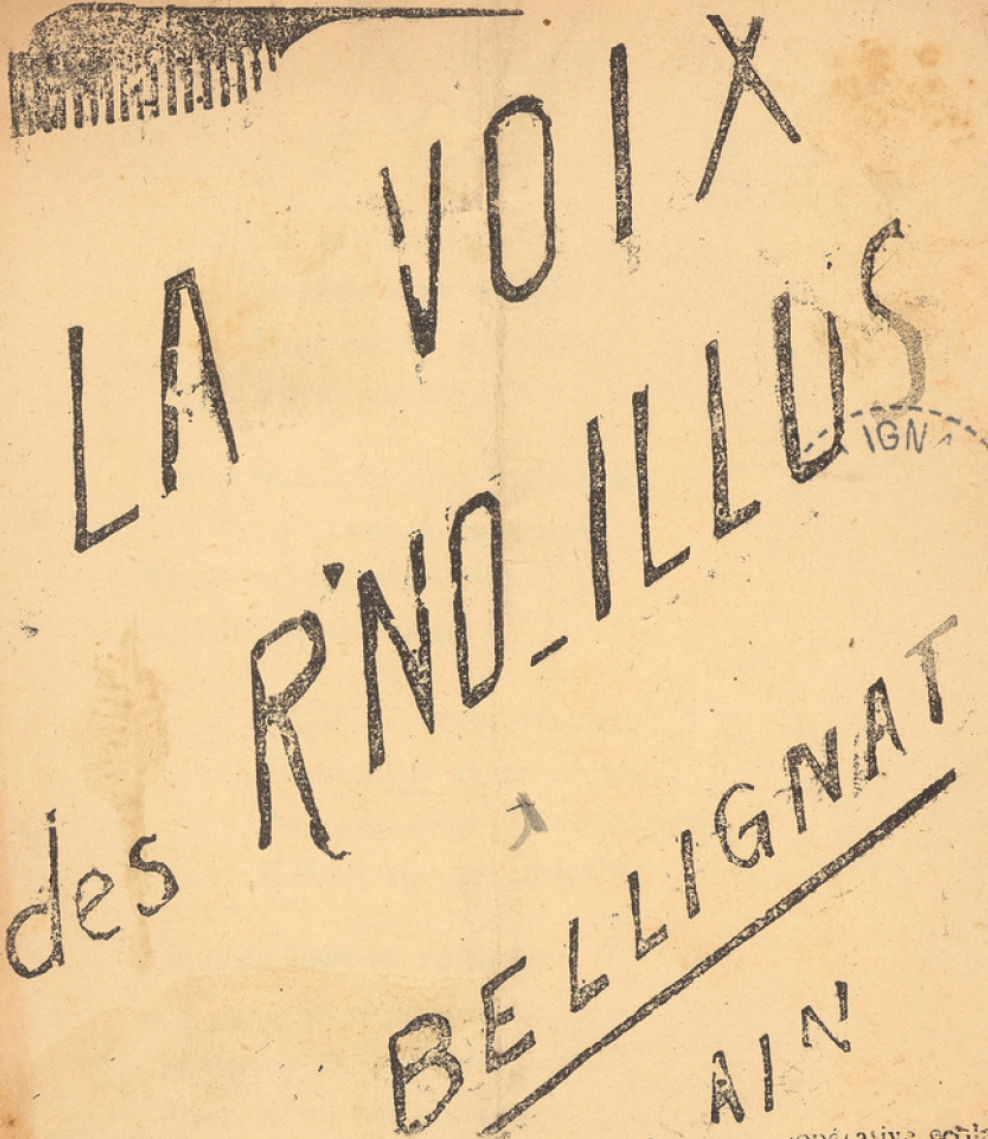 LA VOIX
des R'NO_ILLUS
IGN
BELLIGNAT
AIN